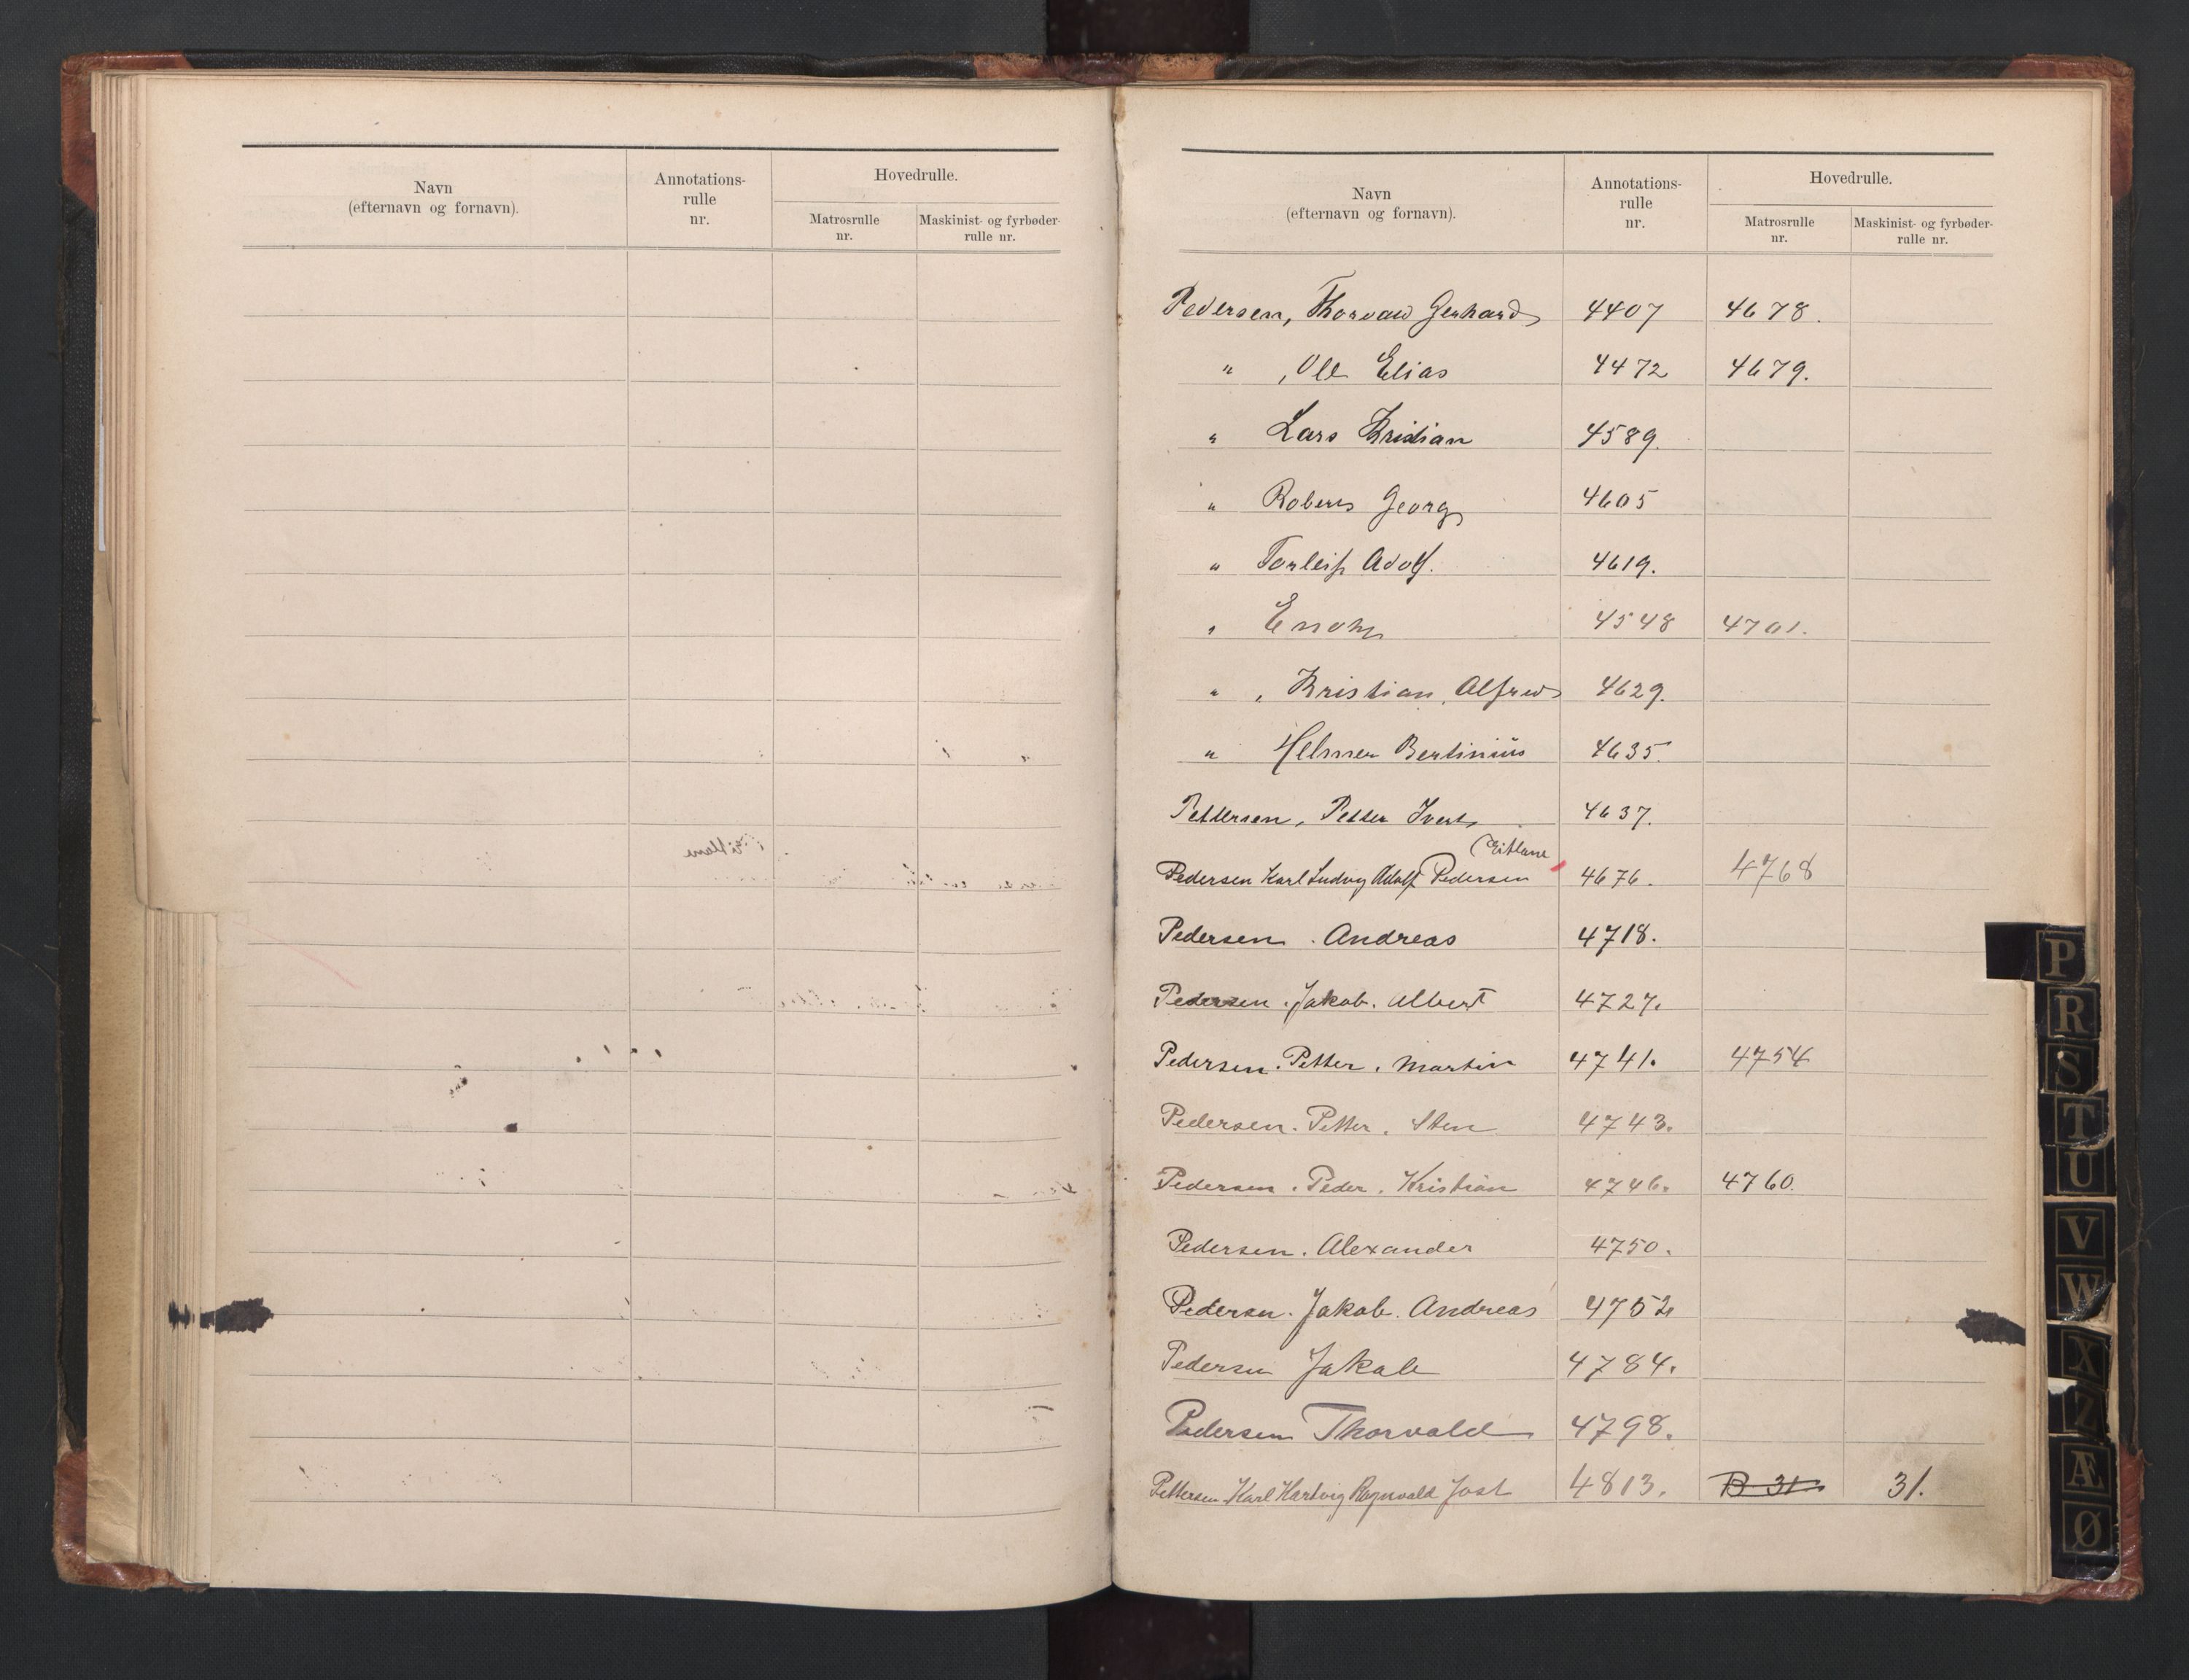 Navn
(efternavn og fornavn).
Annotations-
rulle
nr.
Hovedrulle.
Matrosrulle
nr.
Maskinist- og fyrbøder-
rulle nr.
Navn
(efternavn og fornavn).
Annotations-
rulle
nr.
Hovedrulle.
Matrosrulle
nr.
Maskinist- og fyrbøder-
rulle nr.
Pedersen, Thorvald Gerhard 4407 4678.
" , Ole Elias 4472 4679.
" Lars Kristian 4589.
" Robert Georg 4605
" Torleif Adolf. 4619.
" Enok 4548 4701.
" , Kristian, Alfred 4629.
" Helmer Bertinius 4635.
Pettersen, Petter Ivert 4637.
(Eitlane
Pedersen Karl Ludvig Adolf Pedersen 4676. 4768
Pedersen . Andreas 4718.
Pedersen . Jakob. Albert 4727.
Pedersen. Petter. Martin 4741. 4754
Pedersen. Petter. Sten 4743.
Pedersen. Peder. Kristian 4746. 4760.
Pedersen. Alexander 4750.
Pedersen. Jakob. Andreas 4752
Pedersen Jakob 4784.
Pedersen Thorvald 4798.
Pettersen Karl Hartvig Ragnvald Jost 4813. B 31 31.
P
R
S
T
U
V
W
X
Z
Æ
Ø